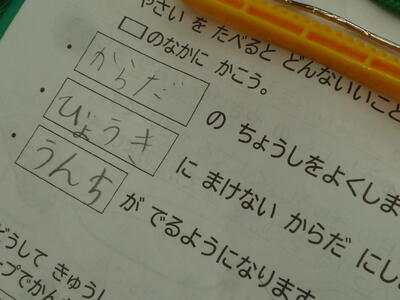 やさい を たべると どんないいこと
□のなかに かこう。
・からだ の ちょうしをよくしま
・びょうき に まけない からだ にし
・うんち が でるようになります
どうして きゅうし
ープでかん